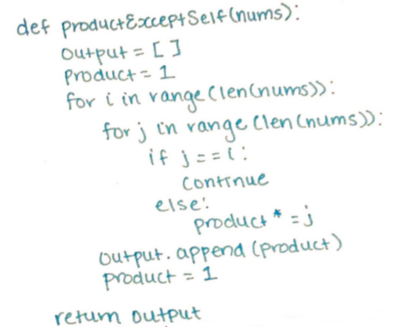 def productExceptSelf(nums):
output = []
product = 1
for i in range (len(nums)):
for j in range (len(nums)):
if j == i:
continue
else:
product * = j
output.append(product)
product = 1
return output